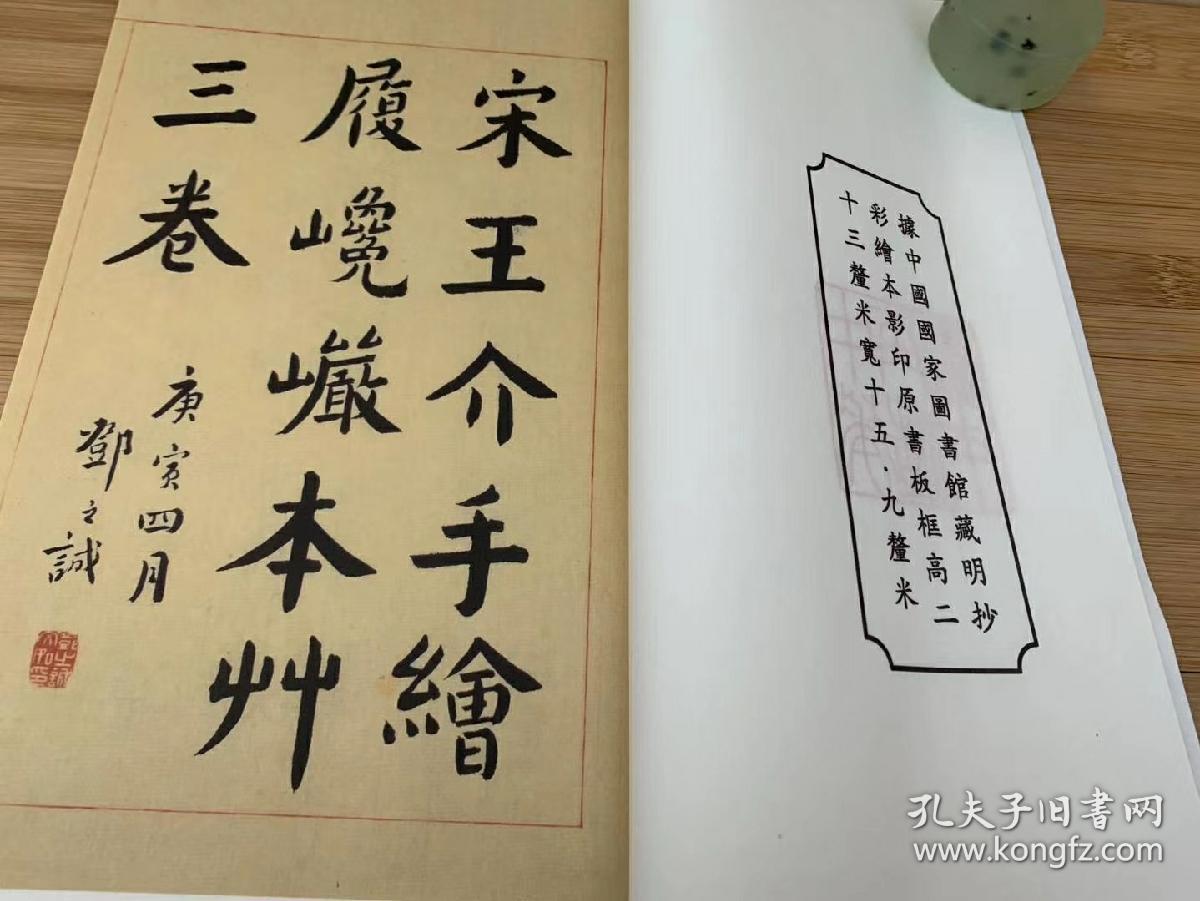 宋王介手繪
履巉巖本艸
三卷
庚寅四月
鄧之誠
據中國國家圖書館藏明抄
彩繪本影印原書板框高二
十三釐米寬十五·九釐米
孔夫子旧书网
www.kongfz.com